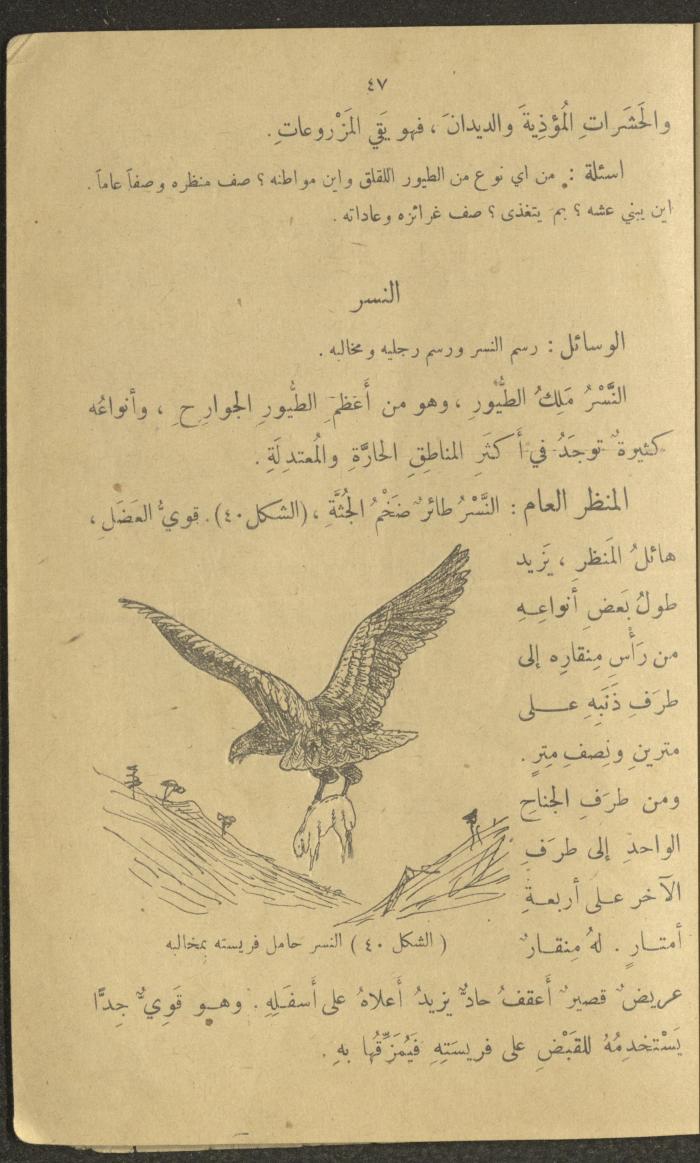 ٤٧
والحَشَراتِ المُؤذِيةَ والديدانَ ، فهو يَقي المَزْروعاتِ .
اسئلة : من اي نوع من الطيور اللقلق واين مواطنه ؟ صف منظره وصفاً عاماً .
اين يبني عشه ؟ بم يتغذى ؟ صف غرائزه وعاداته .
النسر
الوسائل : رسم النسر ورسم رجليه ومخالبه .
النَّسْرُ مَلِكُ الطُّيُورِ ، وهو من أَعظمِ الطيُورِ الجوارِحِ ، وأنواعُه
كثيرةٌ توجَدُ في أَكثَرِ المناطِقِ الحارَّةِ والمُعتدِلَةِ .
المنظر العام : النَّسْرُ طائرٌ ضَخْمُ الجُثَّةِ ، (الشكل ٤٠) . قويُّ العَضَلِ ،
هائلُ المَنظرِ ، يَزيد
طولُ بَعضِ أنواعِـهِ
من رَأْسِ مِنقارِه إلى
طرَفِ ذَنَبِهِ عـــلى
مترينِ ونِصفِ مِترٍ .
ومن طرَفِ الجناحِ
الواحدِ إلى طرَفِ
الآخر عـلى أربعـةِ
أمتـارٍ . لهُ مِنقـارٌ
( الشكل ٤٠ ) النسر حامل فريسته بمخالبه
عريضٌ قصيرٌ أَعقفُ حادٌّ يزيدُ أَعلاهُ على أَسفَلِهِ . وهـو قَوِيٌّ جِدًّا
يَسْتخدِمُهُ للقَبْضِ على فريسَتِهِ فَيُمَزِّقُها بهِ .